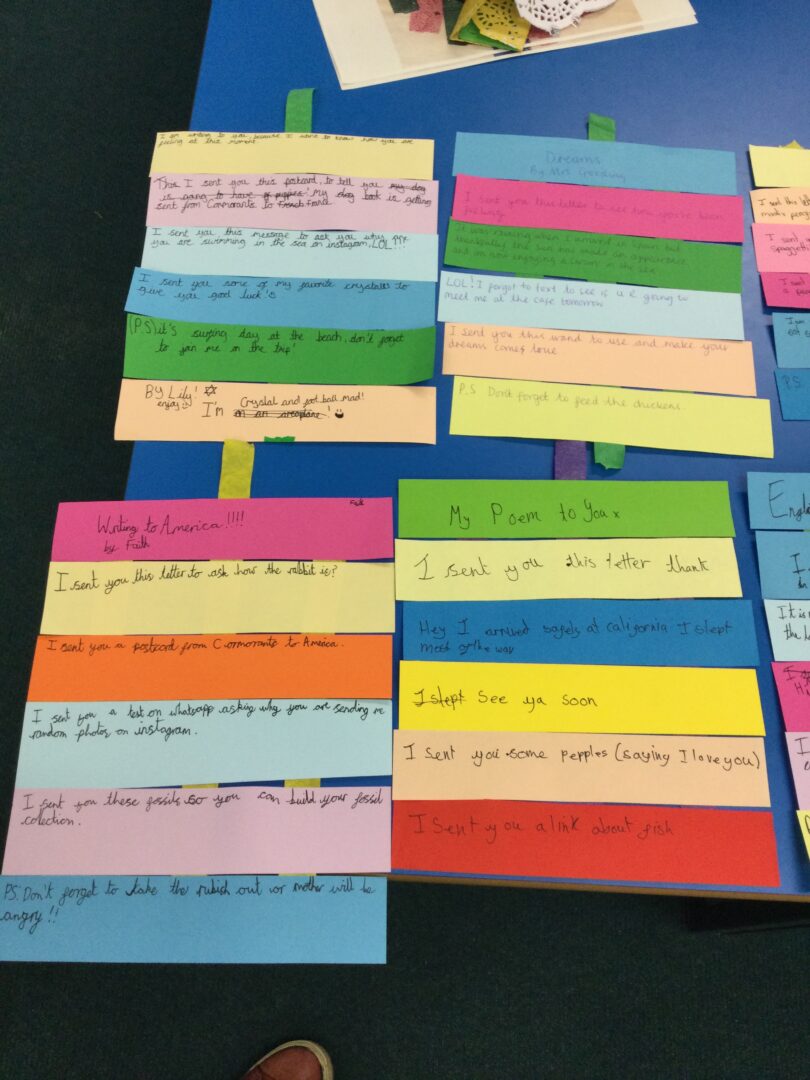 I am writing to you, because I want to know how you are
feeling at this moment.
This I sent you this postcard, to tell you my day
is going to have of puppies! my day book is getting
sent from Cormorants to French France
I sent you this message to ask you why
you are swimming in the sea on instagram, LOL!!!
I sent you some of my favorite crystalls to
give you good luck's
(P.S) it's surfing day at the beach, don't forget
to join me in the trip!
By Lily!
enjoy
Crystal and foot ball mad!
I'm on an aroplane!
Dreams
By Mrs
I sent you this letter to see how you've been
feeling
It was raining when I arrived in Spain but
thankfully the sun has made an appearance
and im now enjoying a swim in the sea
LOL! I forgot to text to see if u r going to
meet me at the cafe tomorrow
I sent you this wand to use and make your
dreams comes true
P.S Don't forget to feed the chickens.
I sent this
I sent
spaghetti
I sent
P.S
Faith
Writing to America!!!!
by Faith
I sent you this letter to ask how the rabbit is?
I sent you a postcard from Cormorants to America.
I sent you a text on whatsapp asking why you are sending me
random photos on instagram.
I sent you these fossils so you can build your fossil
colection.
P.S. Don't forget to take the rubish out or mother will be
angry!!
My Poem to You x
I sent you this letter thank
Hey I arrived safely at california I slept
most of the way
I slept See ya soon
I sent you some pepples (saying I love you)
I Sent you a link about fish
Engl
I
It is
the
I